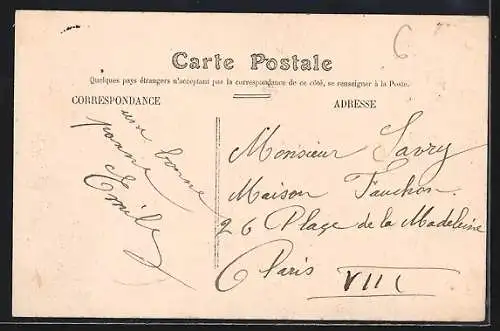 Carte Postale
Quelques pays étrangers n'acceptant pas la correspondance de ce côté, se renseigner à la Poste.
CORRESPONDANCE
ADRESSE
une bonne
Emile
Monsieur Savry
Maison Fauchon
26 Place de la Madeleine
Paris VIII